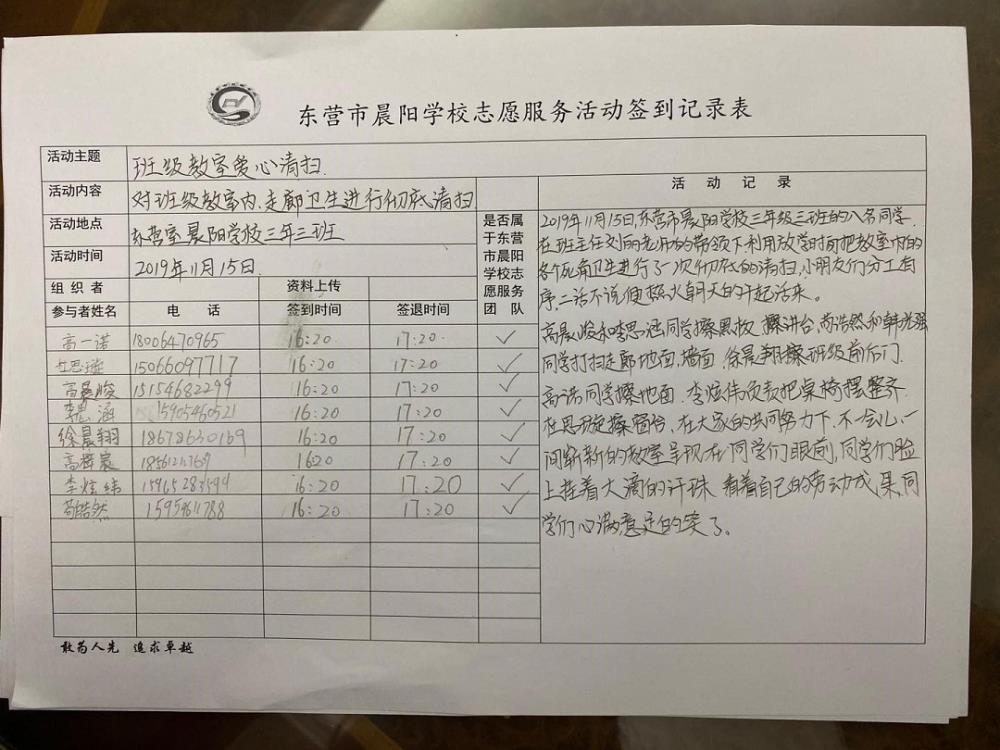 东营市晨阳学校志愿服务活动签到记录表
活动主题 班级教室爱心清扫.
活动内容 对班级教室内、走廊卫生进行彻底清扫
活动地点 东营室晨阳学校三年三班
活动时间 2019年11月15日.
组织者 资料上传
参与者姓名 电话 签到时间 签退时间
是否属
于东营
市晨阳
学校志
愿服务
团队
高一诺 1806470965 16:20 17:20. ✓
15066097717 16:20 17:20 ✓
高晨峻 15154682299 16:20 17:20 ✓
李思涵 15905460521 16:20 17:20 ✓
徐晨翔 18678630169 16:20 17:20 ✓
高梓宸 16:20 17:20 ✓
李炫纬 15965283599 16:20 17:20 ✓
苟皓然 16:20 17:20 ✓
活动记录
2019年11月15日,东营市晨阳学校三年级三班的八名同学.
在班主任刘丽老师的带领下利用放学时间把教室内的
各个死角卫生进行了一次彻底的清扫,小朋友们分工有
序.二话不说便热火朝天的干起活来。
高晨峻和李思涵同学擦黑板 擦讲台,苟浩然和韩光强
同学打扫走廊地面,墙面.徐晨翔擦班级前后门.
高诺同学擦地面.李炫伟负责把桌椅摆整齐.
杜思璇擦窗台.在大家的共同努力下.不一会儿.一
间崭新的教室呈现在同学们眼前,同学们脸
上挂着大滴的汗珠 看着自己的劳动成果,同
学们心满意足的笑了。
敢为人先 追求卓越